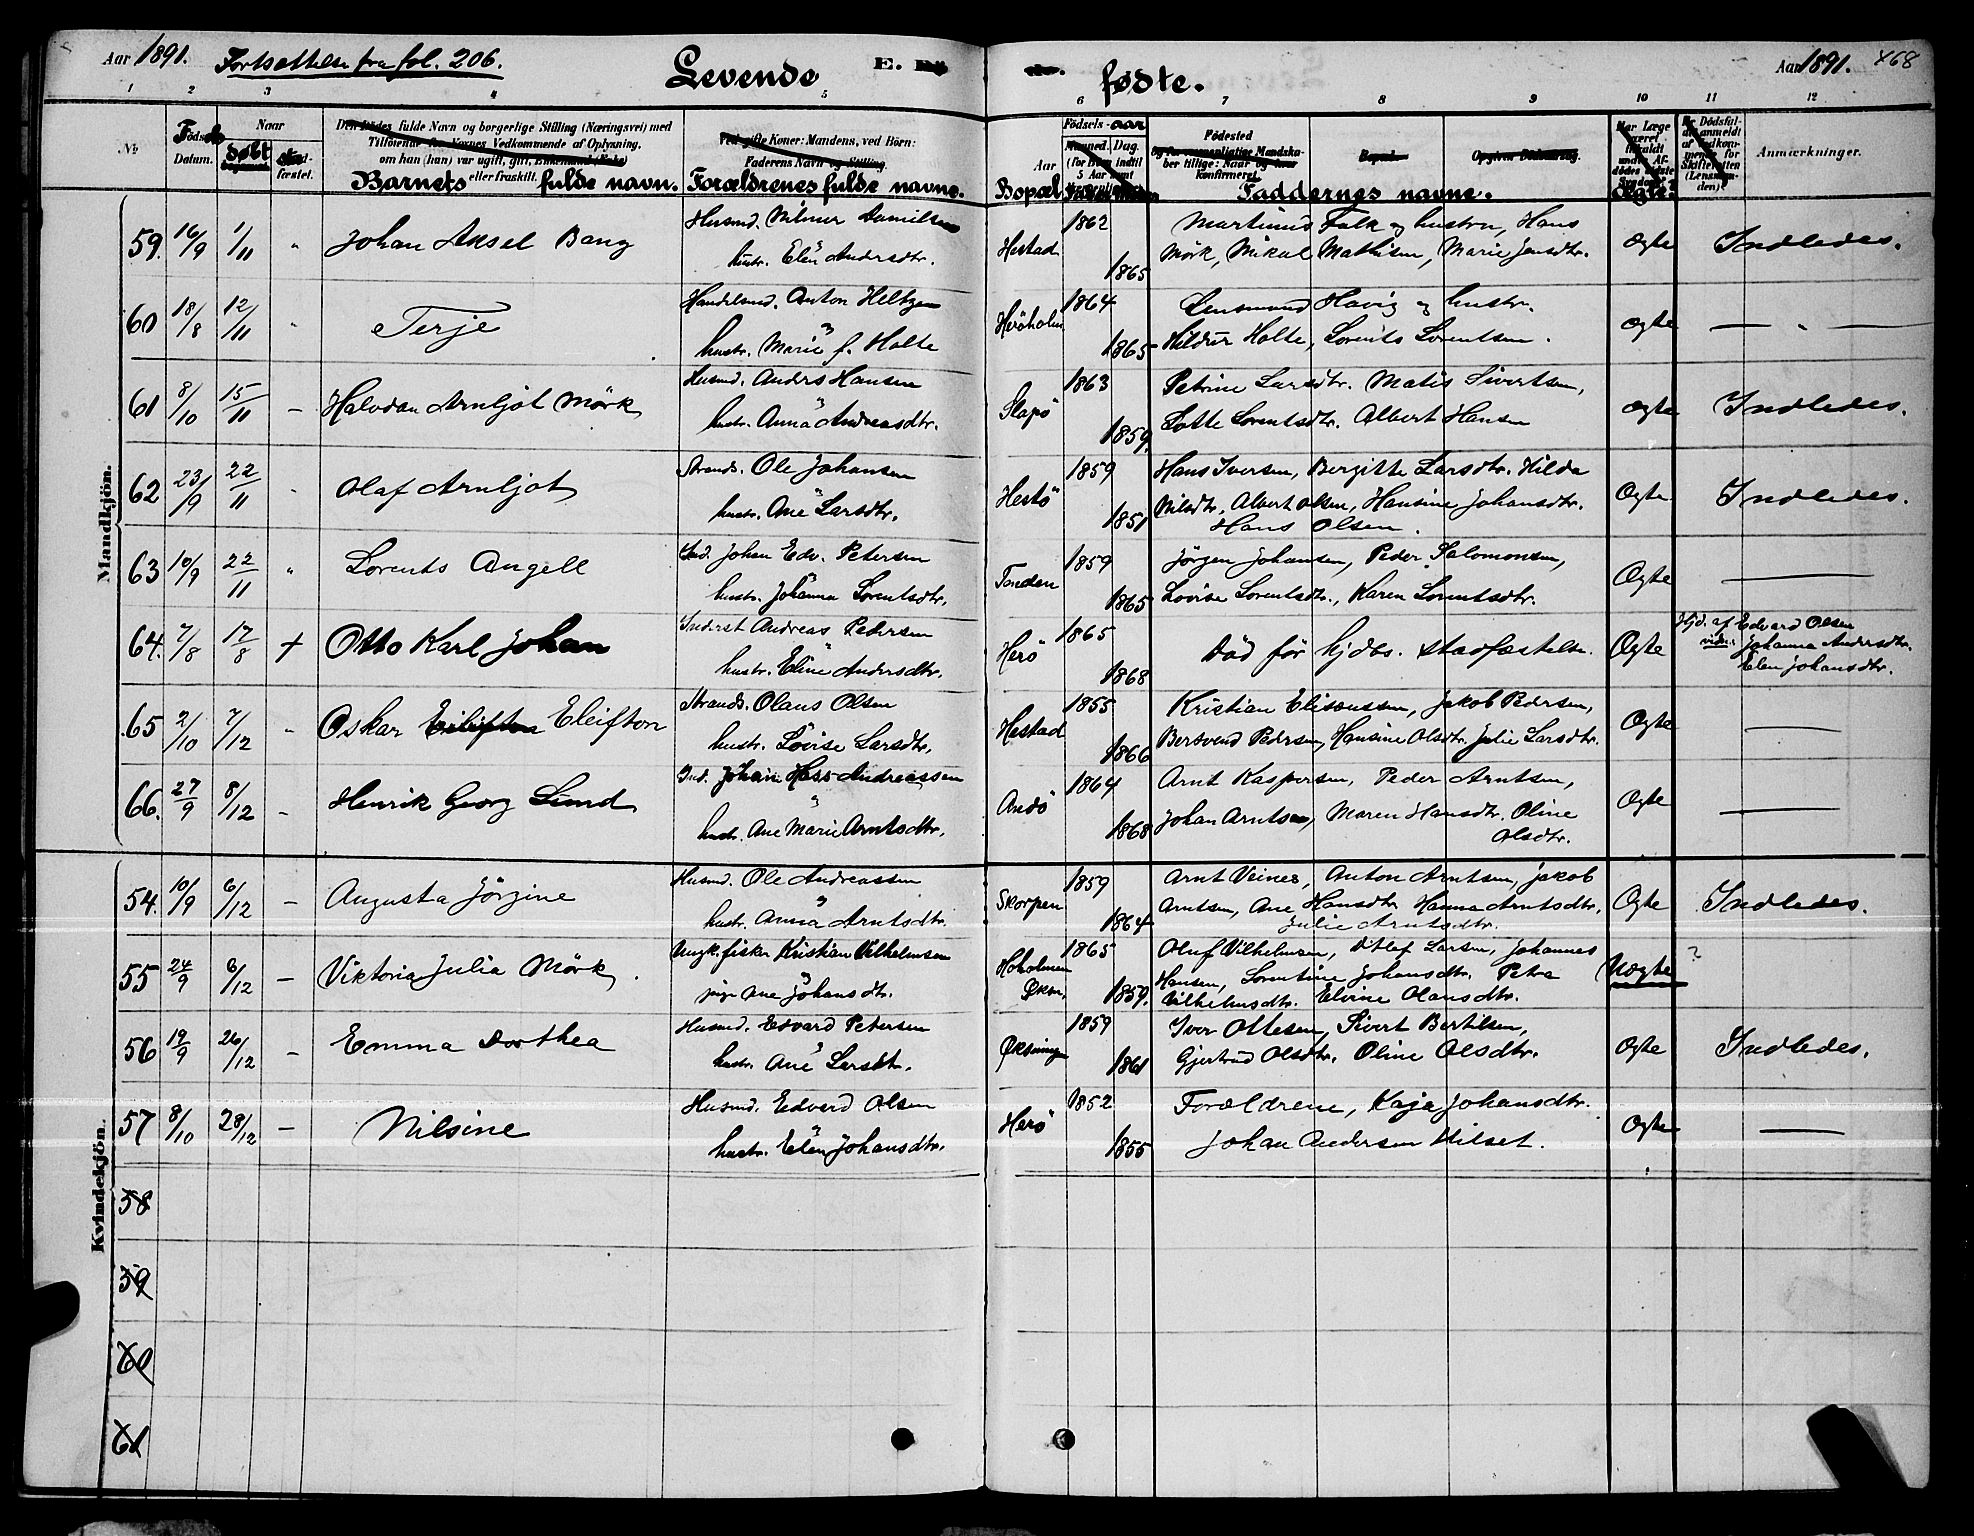 Aar 1891. Fortsættelse fra fol. 206. Levende E. fødte. Aar 1891. 468
1 2 3 4 5 6 7 8 9 10 11 12
No. Føds Datum. Naar døbt Barnets fulde navn. Forældrenes fulde navne. Bopæl Fødsels-aar Faddernes navne. Ægte Anmærkninger.
Mandkjøn.
59. 16/9 1/11 " Johan Aksel Bang
Husmd. Nilmer Danielsen
hustr. Elen Andersdtr.
Hestad 1862
1865
Martinus Falk og hustru, Hans
Mörk, Mikal Mathisen, Marie Jensdtr.
Ægte Indledes.
60 18/8 12/11 " Terje
Handelsmd. Anton Heltzen
hustr. Marie f. Holte
Heröholm 1864
1865
Lensmand Havig og hustr.
Hildur Holte, Lorents Lorentsen.
Ægte — " —
61 8/10 15/11 — Halvdan Arnljot Mörk
Husmd. Anders Hansen
hustr. Anna Andreasdtr.
Slapö 1863
1859.
Petrine Larsdtr. Matis Sivertsen,
Lotte Lorentsdtr. Albert Hansen
Ægte Indledes.
62 23/9 22/11 " Olaf Arnljot
Strands. Ole Johansen
hustr. Ane Larsdtr.
Hestö 1859
1851
Hans Iversen, Bergitte Larsdtr. Hilda
Nilsdtr, Albert Olsen, Hansine Johansdtr.
Hans Olsen.
Ægte Indledes.
63 10/9 22/11 " Lorents Angell
Ind. Johan Edv. Petersen
hustr. Johanna Lorentsdtr.
Tenden 1859
1865
Jörgen Johansen, Peder Salomonsen,
Lovise Lorentsdtr., Karen Lorentsdtr.
Ægte —
64. 7/8 17/8 + Otto Karl Johan
Inderst Andreas Pedersen
hustr. Eline Andersdtr.
Herö 1865
1868
Död för hjdbs. stadfæstelse.
Ægte Hjd. af Edvard Olsen
vidn: Johanna Andersdtr.
Elen Johansdtr.
65 2/10 7/12 " Oskar Eleifton
Strands. Olaus Olsen
hustr. Lovise Larsdtr.
Hestad 1855
1866
Kristian Elisæussen, Jakob Pedersen,
Bertvend Pedersen, Hansine Olsdtr. Julie Larsdtr.
Ægte —
66. 27/9 8/12 — Henrik Georg Lund
Ind. Johan Hass Andreassen
hustr. Ane Marie Arntsdtr.
Andö 1864
1868
Arnt Kaspersen, Peder Arntsen,
Johan Arntsen, Maren Hansdtr. Oline
Olsdtr.
Ægte —
Kvindekjön.
54. 10/9 6/12 — Augusta Jörgine
Husmd. Ole Andreassen
hustr. Anna Arntsdtr.
Skorpen 1859
1864
Arnt Veines, Anton Arntsen, Jakob
Arntsen, Ane Hansdtr Hanna Arntsdtr.
Julie Arntsdtr.
Ægte Indledes.
55 24/9 6/12 — Viktoria Julia Mörk.
Ungk. fisker Kristian Vilhelmsen
pige Ane Johansdtr.
Hoholmen 1865
1859.
Oluf Vilhelmsen, Ditlef Larsen, Johannes
Hansen, Lorentine Johansdtr. Petra
Vilhelmsdtr. Elvine Olausdtr.
Uægte ?
56 19/9 26/12 — Emma Dorthea
Husmd. Edvard Petersen
hustr. Ane Larsdtr.
Øksningen 1859
1861
Iver Ottesen, Sivert Bertilsen,
Gjertrud Olsdtr. Oline Olsdtr.
Ægte Indledes.
57 8/10 28/12 — Nilsine
Husmd. Edvard Olsen
hustr. Elen Johansdtr.
Herö 1852
1855
Forældrene, Kaja Johansdtr.
Johan Andersen Hilset.
Ægte —
58
59
60
61